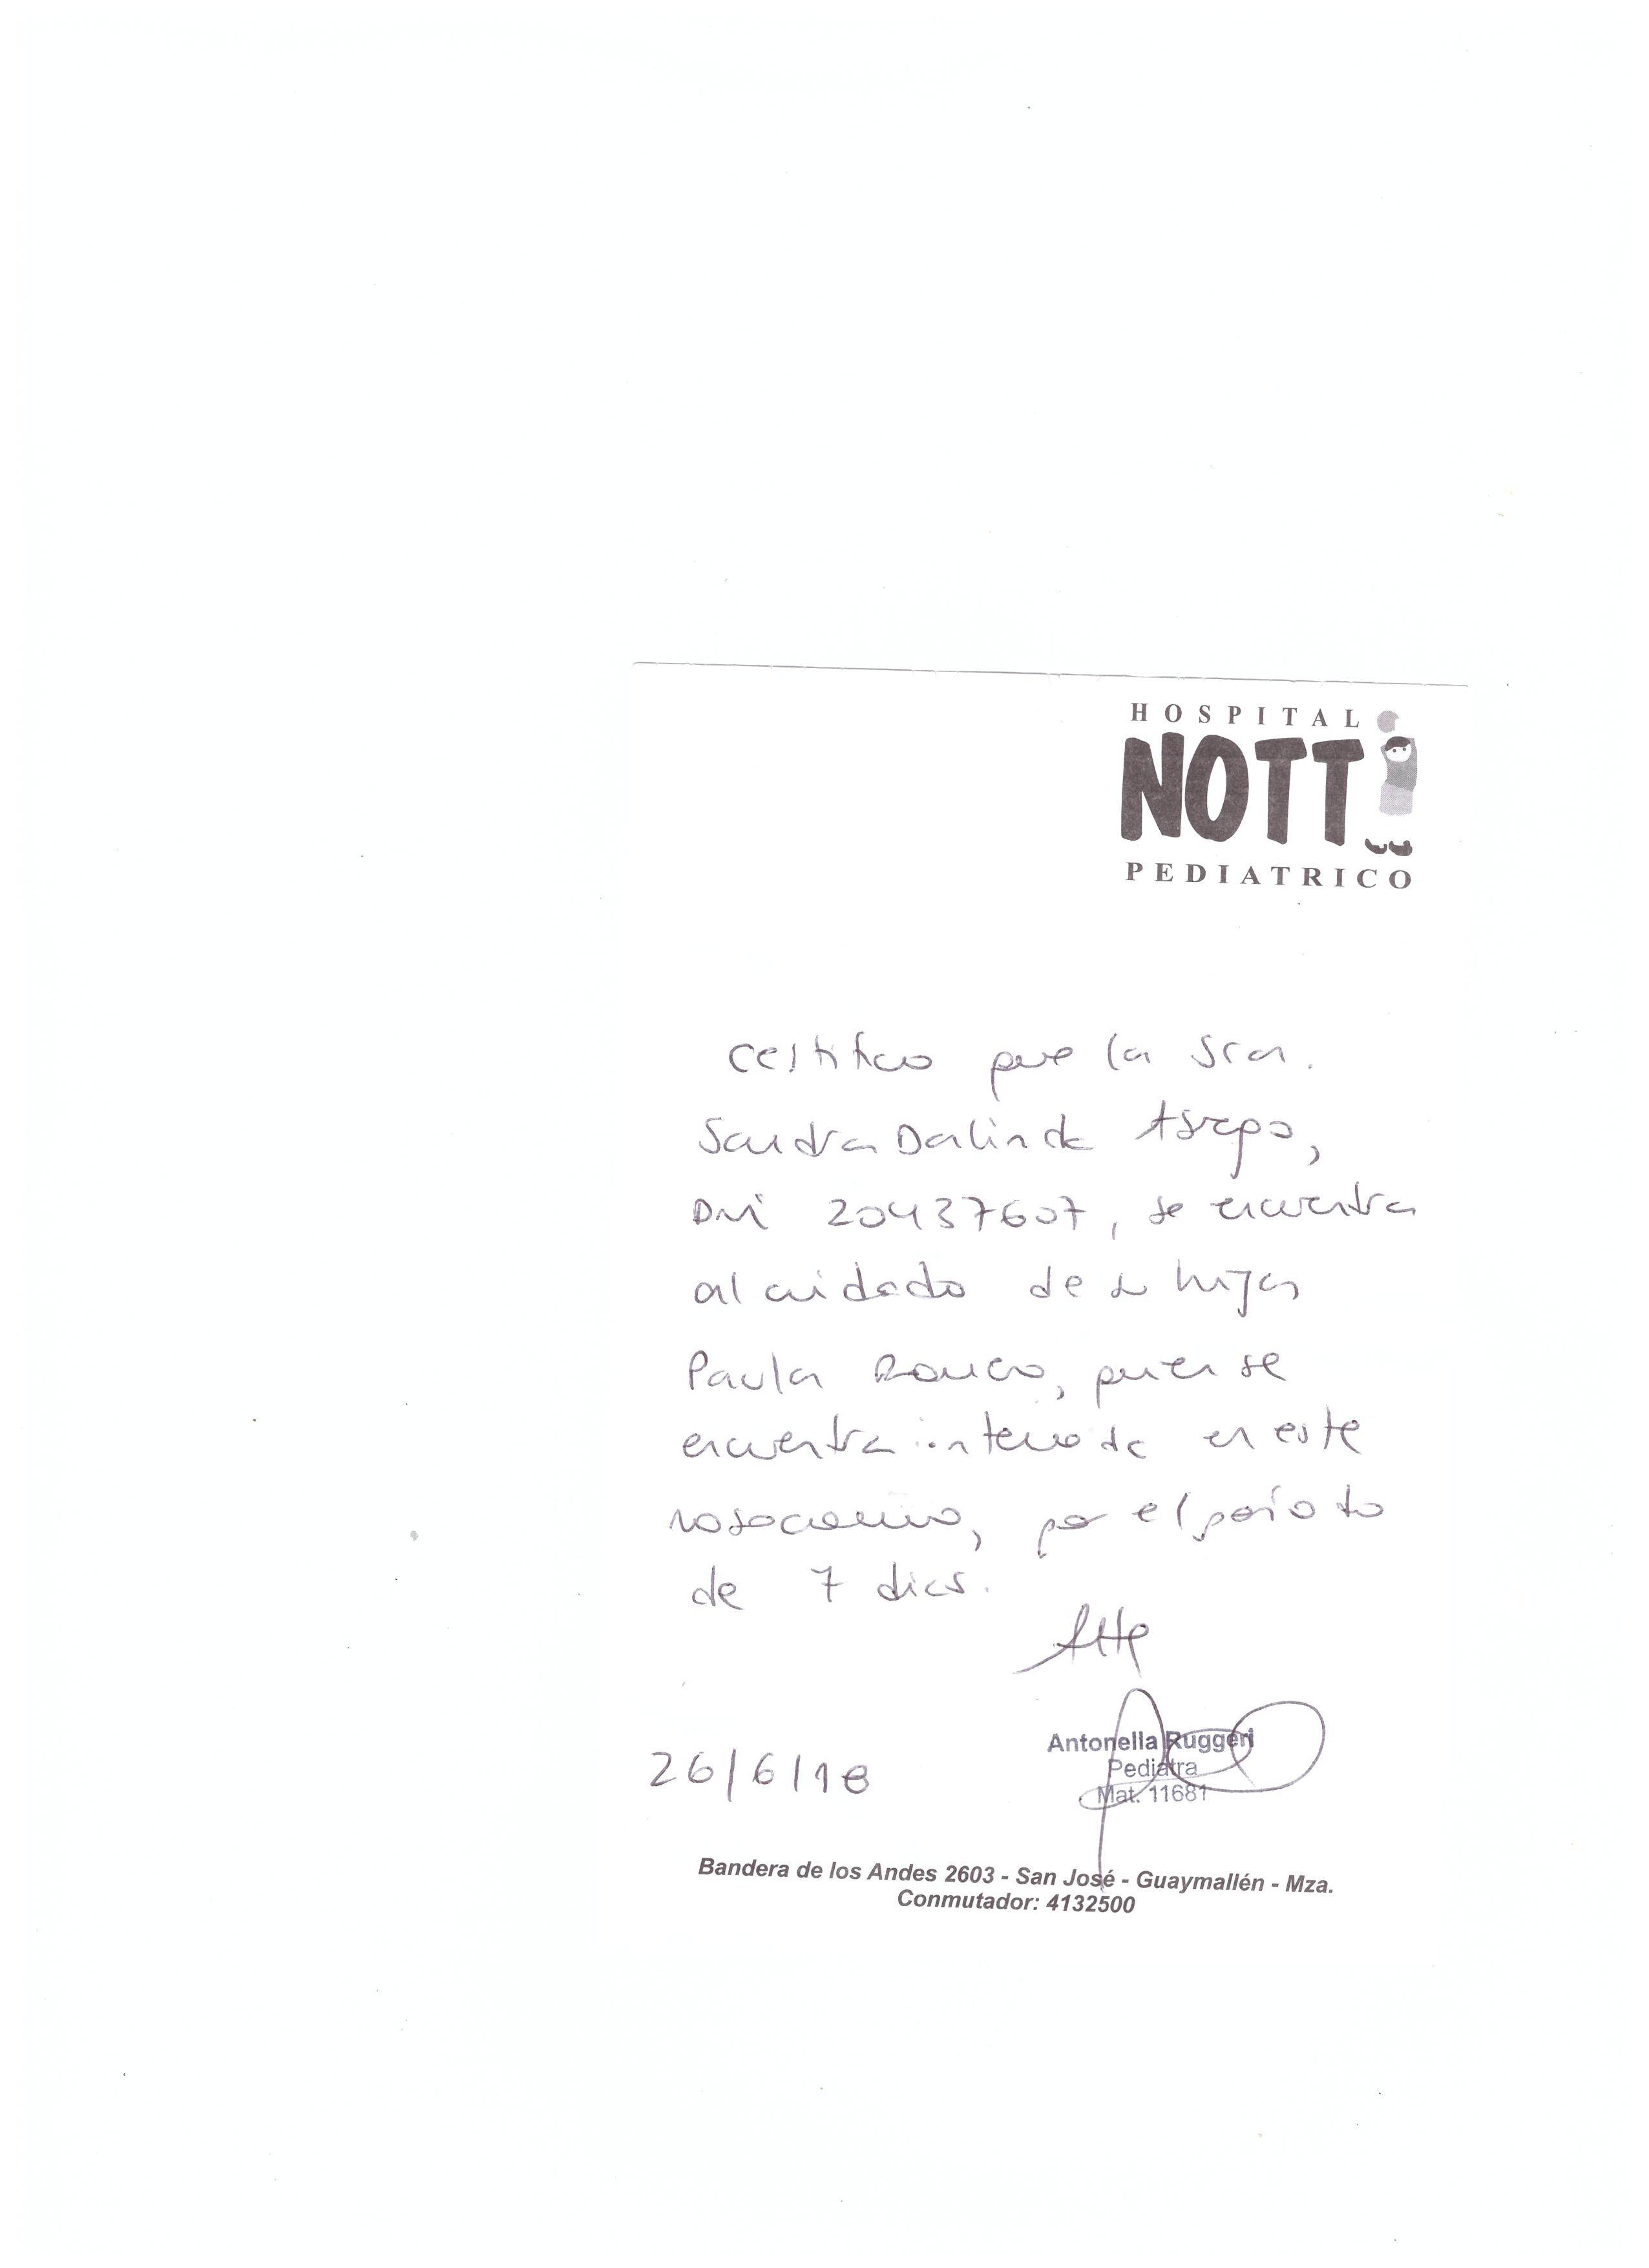 HOSPITAL
NOTTI
PEDIATRICO
Certifico que la Sra.
Sandra Dalinda
DNI 20437607, se encuentra
al cuidado de su hija
Paula Ronco, quien se
encuentra internada en este
nosocomio, por el período
de 7 dias.
Atte
Antonella Ruggeri
Pediatra
Mat. 11681
26/6/18
Bandera de los Andes 2603 - San José - Guaymallén - Mza.
Conmutador: 4132500